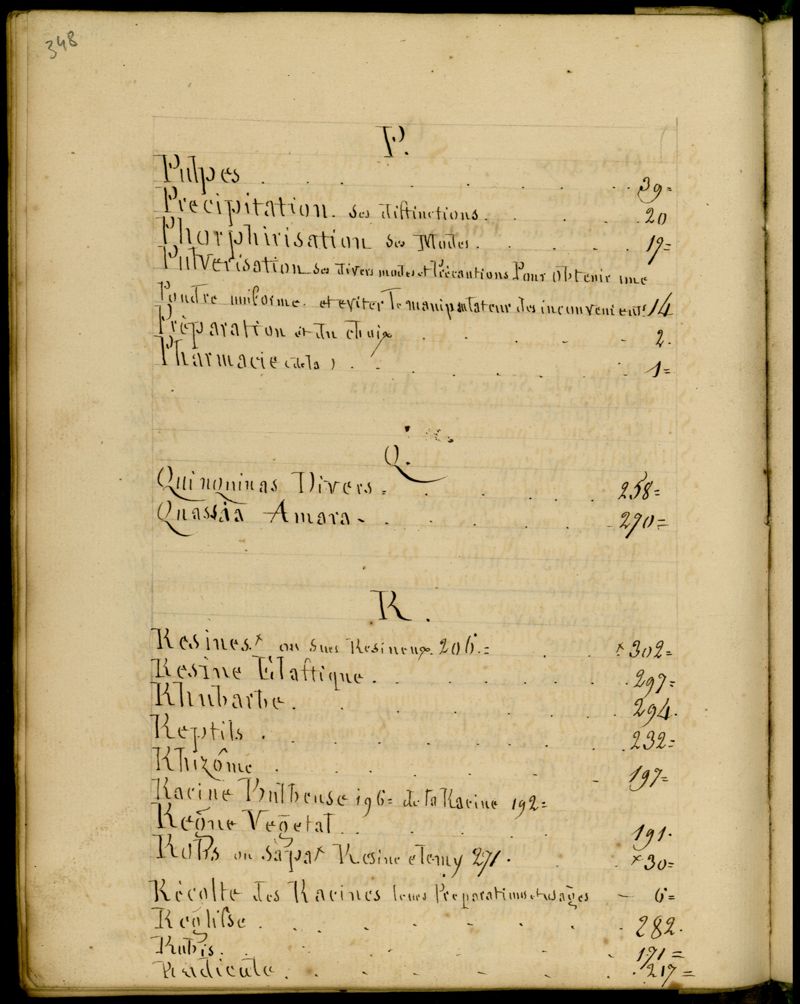 348
P.
Pulpes . . . . . . . 39=
Precipitation. Ses distinctions. . . . . 20
Phorphirisation Ses Modes . . . . . 19=
Pulverisation Ses Divers modes et Précautions Pour Obtenir une
Poudre uniforme. et eviter Le manipulateur des inconvenients 14
Préparation et du choix . . . - - 2.
Pharmacie (de la) . . . . . . 1=
Q.
Quinquinas Divers. . . . . . 258=
Quassia Amara - . . . . . . 270=
R.
Resines.x ou Sucs Resineux. 206.= . . x302=
Resine Elastique. . . . . . . 297=
Rhubarbe. . . . . . . . 294.
Reptils . . . . . . . . 232=
Rhizôme . . . . . . . - 197=
Racine Bulbeuse 196= de la Racine 192=
Regne Vegetal . . . . . . 191.
Robs ou sapax Resine elemy 271. . . x30=
Récolte des Racines leurs Preparations et usages - 6=
Reglisse . . . . . . . 282.
Rubis. . . - - - - 171=
Radicule . . - - - - 217=